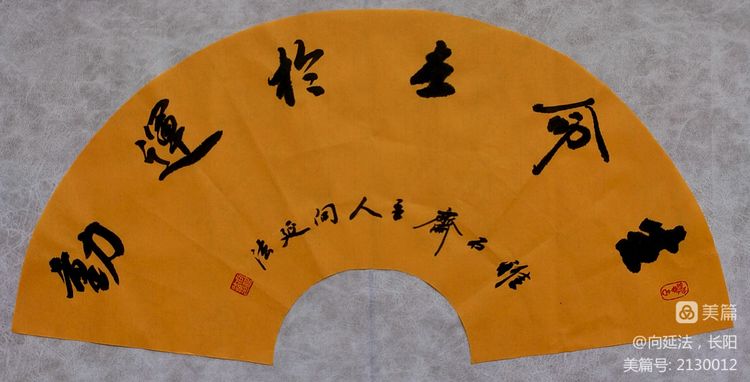 生命在於運動
雅石齋主人向延法
美篇
@向延法，长阳
美篇号: 2130012